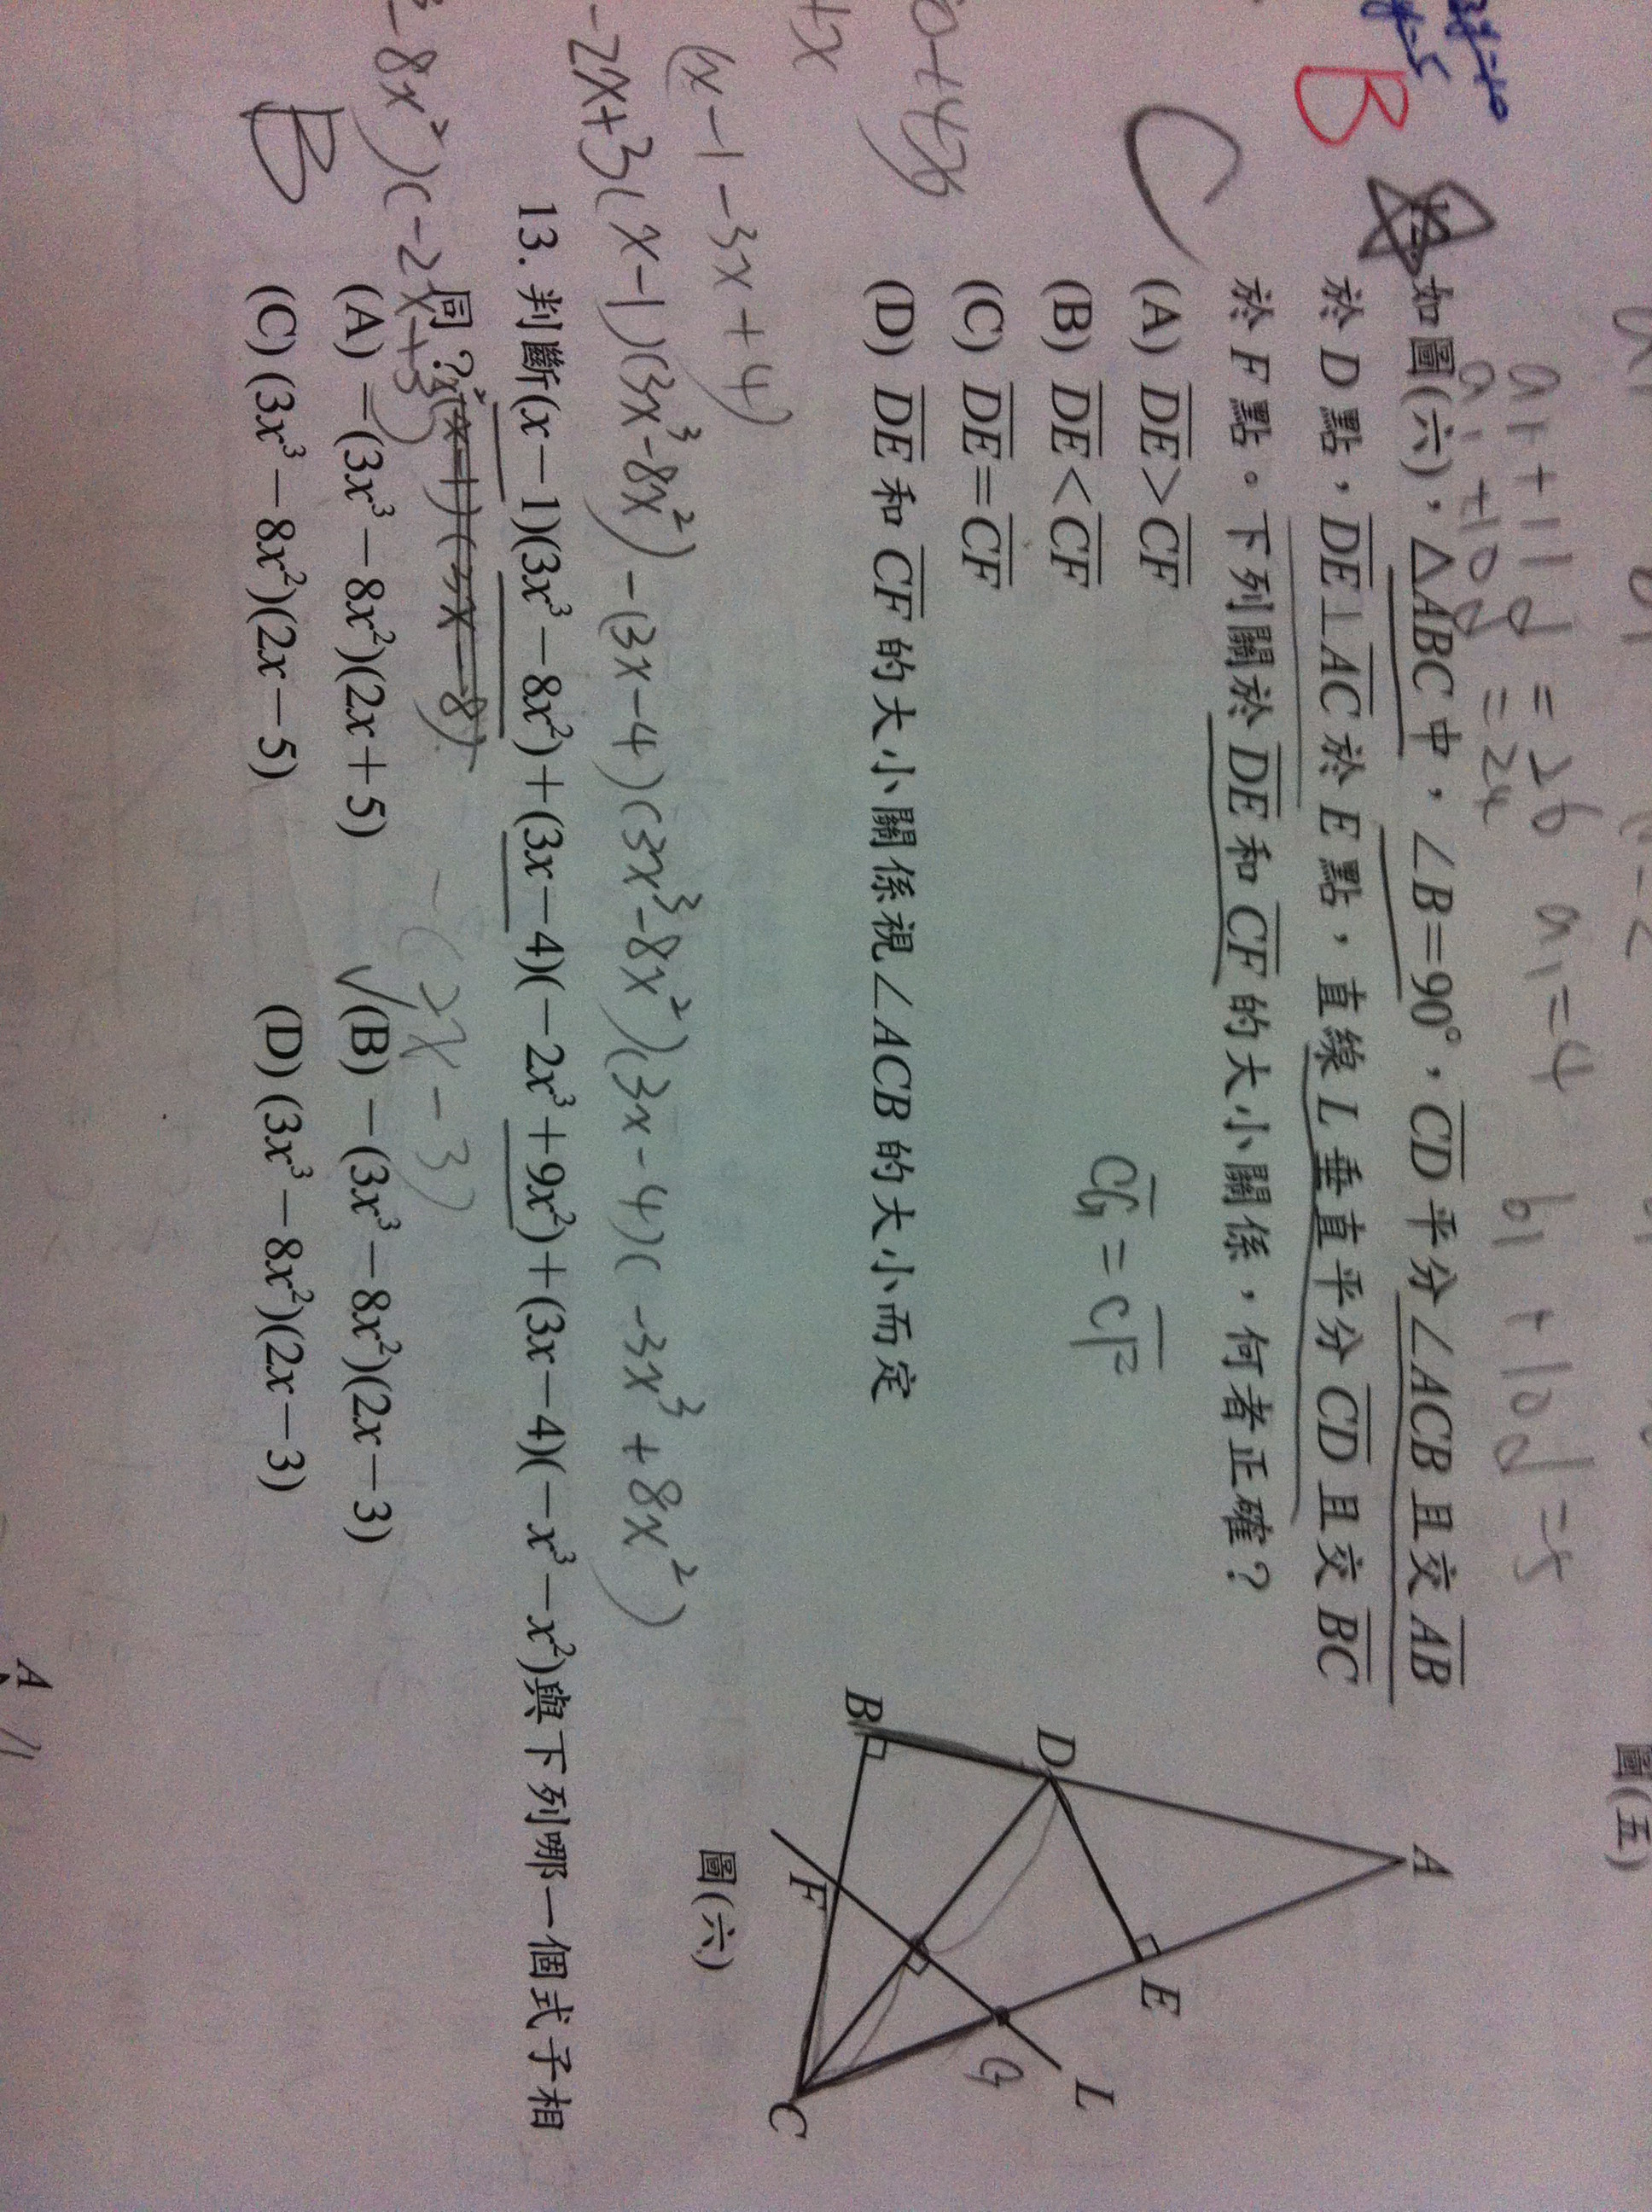 圖(五)
a₁+11d=26 a₁=4 b₁+10d=5
a₁+10d=24
B
如圖(六),△ABC中,∠B=90°,CD平分∠ACB且交AB
於D點,DE⊥AC於E點,直線L垂直平分CD且交BC
於F點。下列關於DE和CF的大小關係,何者正確?
C
(A) DE>CF
(B) DE<CF
(C) DE=CF
(D) DE和CF的大小關係視∠ACB的大小而定
CG=CF
A
D
B
E
F
G
L
C
圖(六)
(x-1-3x+4)
-2x+3(x-1)(3x³-8x²)-(3x-4)(3x³-8x²)(3x-4)(-3x³+8x²)
13. 判斷(x-1)(3x³-8x²)+(3x-4)(-2x³+9x²)+(3x-4)(-x³-x²)與下列哪一個式子相
同?
-8x²)(-2x+3)
-(2x-3)
B
(A) -(3x³-8x²)(2x+5) √(B) -(3x³-8x²)(2x-3)
(C) (3x³-8x²)(2x-5) (D) (3x³-8x²)(2x-3)
A